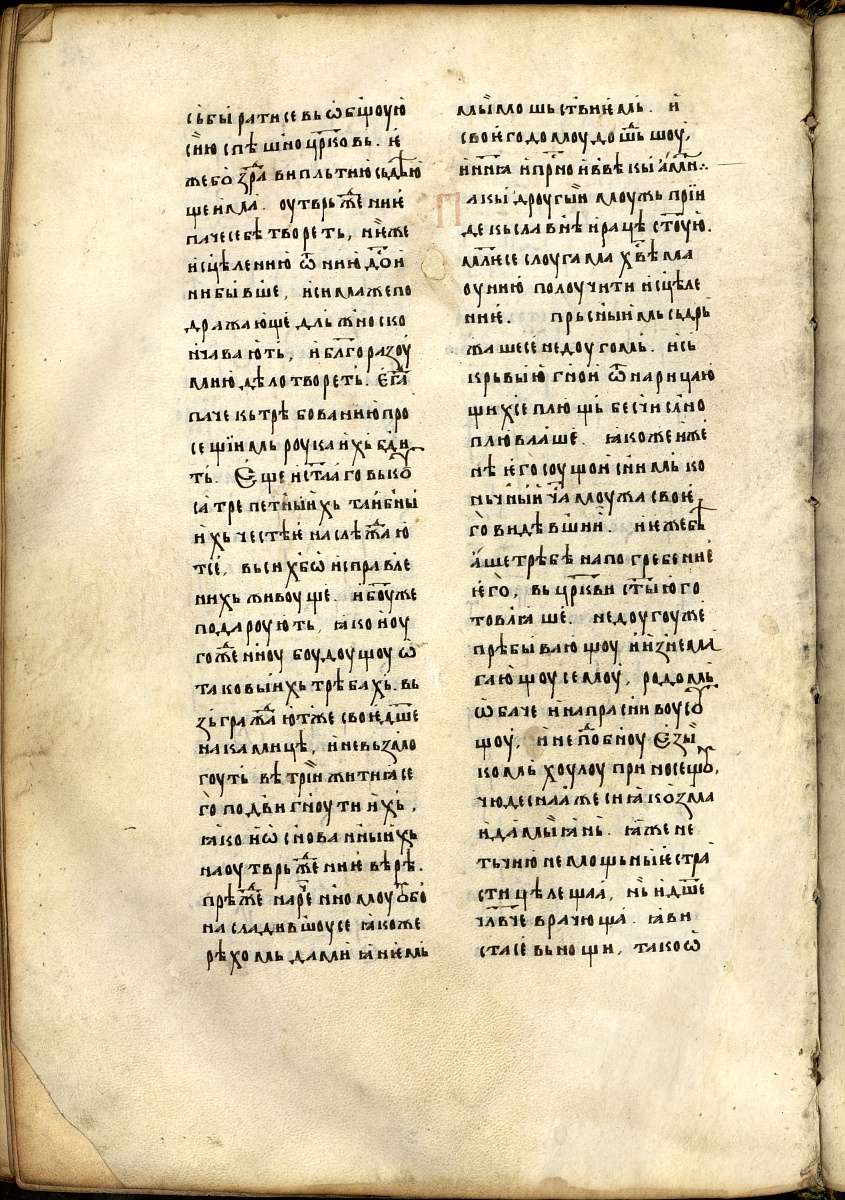 сьбыратисе вь ѡбꙿщоую
сїю спѣшно црⷪ҇ковь. и
же бо зⷣра ви пльтню сьдѣю
ще има. оутврьжⷣение
паче себѣ твореть, ниже
исцѣлению ѿ нию дꙿои
ни бывше, иси маже по
дражающе дльжно ско
нчавають, и блг҃оразоу
мию дѣло твореть. егⷣа
паче кь трѣбованию про
сещїимь роука ихь бди
ть. Еще и стл҃аго выкоу
са трепетныихь таибны
ихь чести е наслѣжⷣаю
тсе, вьсих бѡ исправле
нихь живоуще. и боуже
подароують, ꙗко ноу
гожⷣенноу боудоущоу ѡ
таковыихь трѣбахь. вь
зьгражⷣають же свое дш҃е
на камице, и не вьзмо
гоуть вѣтри житиꙗ се
го подвигноути ихь,
ꙗко и ѡсновани ныихь
на оутврьжⷣение вѣрѣ.
прѣжⷣе нареⷱ҇нномоу оубо
насладившоусе ꙗкоже
рѣхомь дамиꙗнемь
мымошьствиемь. и
своего домоу дошⷣьшоу,
инн҃ꙗ и прн҃о и вь вѣкы ами⁘
Пакы дроугыи моужь прїи
де кь славнѣи рацѣ стоую.
млѥ҃се слоугама хв҃ѣма
оу нию полоучити исцѣле
ние. прьсныимь сьдрь
жаше се недоугомь. и сь
крьвыю гнои ѿнарицаю
щихсе плющь бесчислно
плюваше. ꙗкоже иже
нѣ его соущои снимь ко
ньчныи чⷭ҇а моужа свое
го видѣвши. и ꙗже бѣ
аще трѣбѣ на погребение
его, вь црк҃ви стыю го
товлꙗше. недоугоу же
прѣбывающоу и изнема
гающоу семоу, родомь
ѡбаче и напрасниву соу
щоу, и неподⷪ҇бноу езы
комь хоулоу приносещоу,
чюдеснаа же сиꙗ козма
и дамыꙗнь. ꙗже не
тьчию немощьные стра
сти цѣлеща, нь и дш҃е
чл҃вче врачюща. ꙗви
стасе вь нощи, тако ѡ